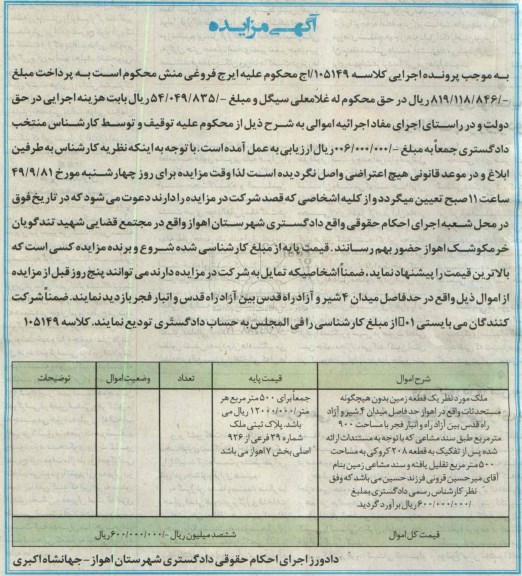 آگهی مزایده
به موجب پرونده اجرایی کلاسه ۱۰۵۱۴۹/اج محکوم علیه ایرج فروغی منش محکوم است به پرداخت مبلغ
۸۱۹/۱۱۸/۸۴۶/- ریال در حق محکوم له غلامعلی سیگل و مبلغ ۵۴/۰۴۹/۸۳۵/- ریال بابت هزینه اجرایی در حق
دولت و در راستای اجرای مفاد اجرائیه اموالی به شرح ذیل از محکوم علیه توقیف و توسط کارشناس منتخب
دادگستری جمعاً به مبلغ ۰۰۶/۰۰۰/۰۰۰/- ریال ارزیابی به عمل آمده است. با توجه به اینکه نظریه کارشناس به طرفین
ابلاغ و در موعد قانونی هیچ اعتراضی واصل نگردیده است لذا وقت مزایده برای روز چهارشنبه مورخ ۴۹/۹/۸۱
ساعت ۱۱ صبح تعیین میگردد و از کلیه اشخاصی که قصد شرکت در مزایده را دارند دعوت می شود که در تاریخ فوق
در محل شعبه اجرای احکام حقوقی واقع دادگستری شهرستان اهواز واقع در مجتمع قضایی شهید تندگویان
خرمکوشک اهواز حضور بهم رسانند. قیمت پایه از مبلغ کارشناسی شده شروع و برنده مزایده کسی است که
بالاترین قیمت را پیشنهاد نماید، ضمناً اشخاصیکه تمایل به شرکت در مزایده دارند می توانند پنج روز قبل از مزایده
از اموال ذیل واقع در حدفاصل میدان ۴ شیر و آزاد راه قدس بین آزاد راه قدس و انبار فجر بازدید نمایند. ضمناً شرکت
کنندگان می بایستی ۰۱٪ از مبلغ کارشناسی را فی المجلس به حساب دادگستری تودیع نمایند. کلاسه ۱۰۵۱۴۹
شرح اموال قیمت پایه تعداد وضعیت اموال توضیحات
ملک مورد نظر یک قطعه زمین بدون هیچگونه
مستحدثات واقع در اهواز حد فاصل میدان ۴ شیر و آزاد
راه قدس بین آزاد راه و انبار فجر با مساحت ۹۰۰
متر مربع طبق سند مشاعی که با توجه به مستندات ارائه
شده پس از تفکیک به قطعه ۲۰۸ کروکی به مساحت
۵۰۰ متر مربع تقلیل یافته و سند مشاعی زمین بنام
آقای میرحسین قرونی فرزند حسین می باشد که وفق
نظر کارشناس رسمی دادگستری بمبلغ
۶۰۰/۰۰۰/۰۰۰/ ریال برآورد گردید.
جمعاً برای ۵۰۰ متر مربع هر
متر ۱۲۰۰/۰۰۰/ ریال می
باشد. پلاک ثبتی ملک
شماره ۲۹ فرعی از ۹۲۶
اصلی بخش ۷ اهواز می باشد
قیمت کل اموال ششصد میلیون ریال ۶۰۰/۰۰۰/۰۰۰/- ریال
دادورز اجرای احکام حقوقی دادگستری شهرستان اهواز - جهانشاه اکبری